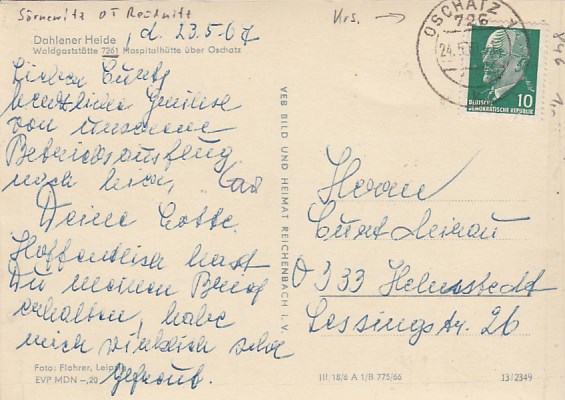 Sörnewitz OT Reudnitz
Krs. →
Dahlener Heide, d. 23.5.67
Waldgaststätte 7261 Hospitalhütte über Oschatz
Lieber Curt,
herzliche Grüße
von unserem
Betriebsausflug
nach hier,
Deine Lotte.
Hoffentlich hast
Du meinen Brief
erhalten, habe
mich wirklich sehr
gefreut.
Foto: Flohrer, Leipzig
EVP MDN –,20
VEB BILD UND HEIMAT REICHENBACH I. V.
OSCHATZ 1
726
24.5.
10
DEUTSCHE
DEMOKRATISCHE REPUBLIK
Herrn
Curt Meinau
333 Helmstedt
Lessingstr. 26
III/18/6 A 1/B 775/66
13/2349